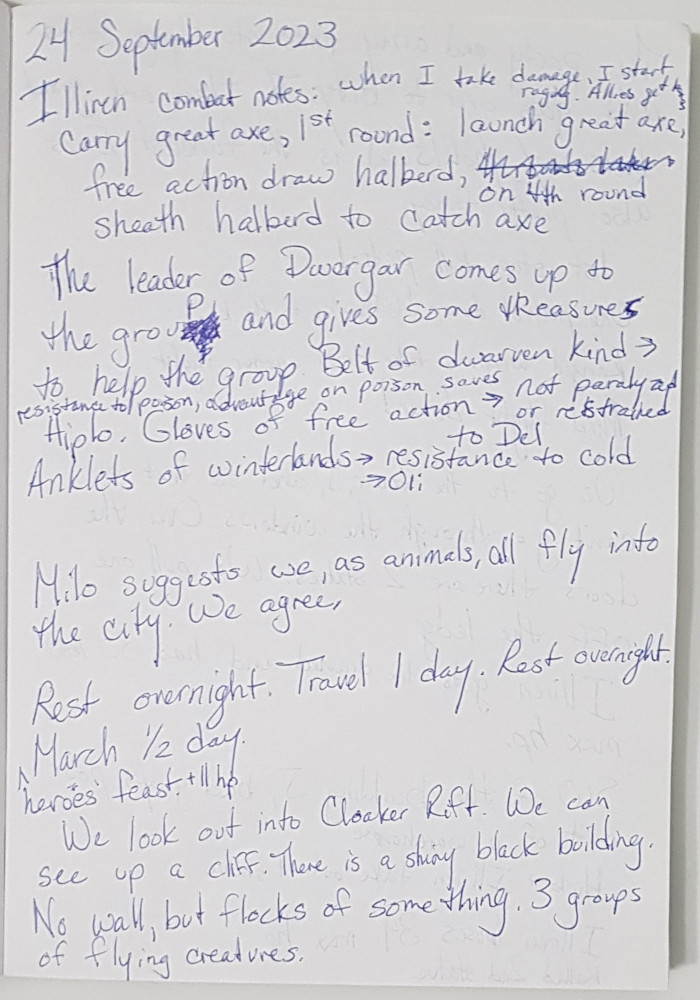 24 September 2023
Illiren combat notes: when I take damage, I start
raging. Allies get
Carry great axe, 1st round: launch great axe,
free action draw halberd,
on 4th round
sheath halberd to catch axe
The leader of Dwergar comes up to
the group and gives some treasures
to help the group. Belt of dwarven kind →
resistance to poison, advantage on poison saves
Hiplo. Gloves of free action → not paralyzed
or restrained
to Del
Anklets of winterlands → resistance to cold
→ Oli
Milo suggests we as animals, all fly into
the city. We agree,
Rest overnight. Travel 1 day. Rest overnight.
March 1/2 day.
heroes' feast. +11 hp
We look out into Cloaker Rift. We can
see up a cliff. There is a shiny black building.
No wall, but flocks of something. 3 groups
of flying creatures.